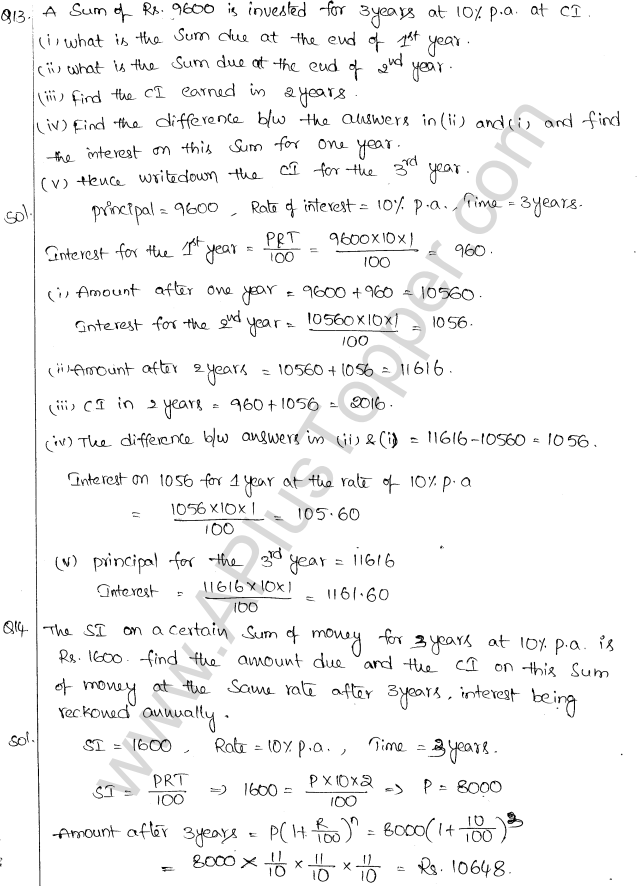 Q13. A Sum of Rs. 9600 is invested for 3 years at 10% p.a. at CI.
(i) what is the Sum due at the end of 1st year.
(ii) what is the Sum due at the end of 2nd year.
(iii) Find the CI earned in 2 years.
(iv) Find the difference b/w the answers in (ii) and (i) and find
the interest on this Sum for one year.
(v) Hence write down the CI for the 3rd year.
Sol. principal = 9600, Rate of interest = 10% p.a., Time = 3 years.
Interest for the 1st year = PRT/100 = 9600×10×1/100 = 960.
(i) Amount after one year = 9600 + 960 = 10560.
Interest for the 2nd year = 10560×10×1/100 = 1056.
(ii) Amount after 2 years = 10560 + 1056 = 11616.
(iii) CI in 2 years = 960 + 1056 = 2016.
(iv) The difference b/w answers in (ii) & (i) = 11616 - 10560 = 1056.
Interest on 1056 for 1 year at the rate of 10% p.a
= 1056×10×1/100 = 105.60
(v) principal for the 3rd year = 11616
Interest = 11616×10×1/100 = 1161.60
Q14. The SI on a certain Sum of money for 3 years at 10% p.a. is
Rs. 1600. find the amount due and the CI on this Sum
of money at the Same rate after 3 years, interest being
reckoned annually.
Sol. SI = 1600, Rate = 10% p.a., Time = 3 years.
SI = PRT/100 => 1600 = P×10×2/100 => P = 8000
Amount after 3 years = P(1+R/100)^n = 8000(1+10/100)^3
= 8000 × 11/10 × 11/10 × 11/10 = Rs. 10648.
www.APlusTopper.com